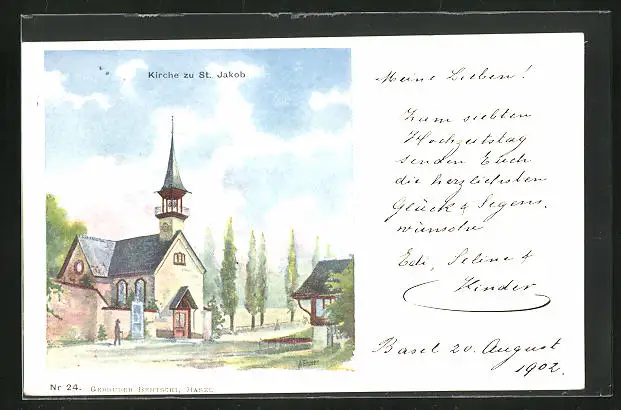 Kirche zu St. Jakob
Meine Lieben!
Zum siebten
Hochzeitstag
senden Euch
die herzlichsten
Glück & Segens-
wünsche
Edi, Seline &
Kinder
Basel 20. August
1902.
Nr 24. GEBRÜDER BENTSCHI, BASEL